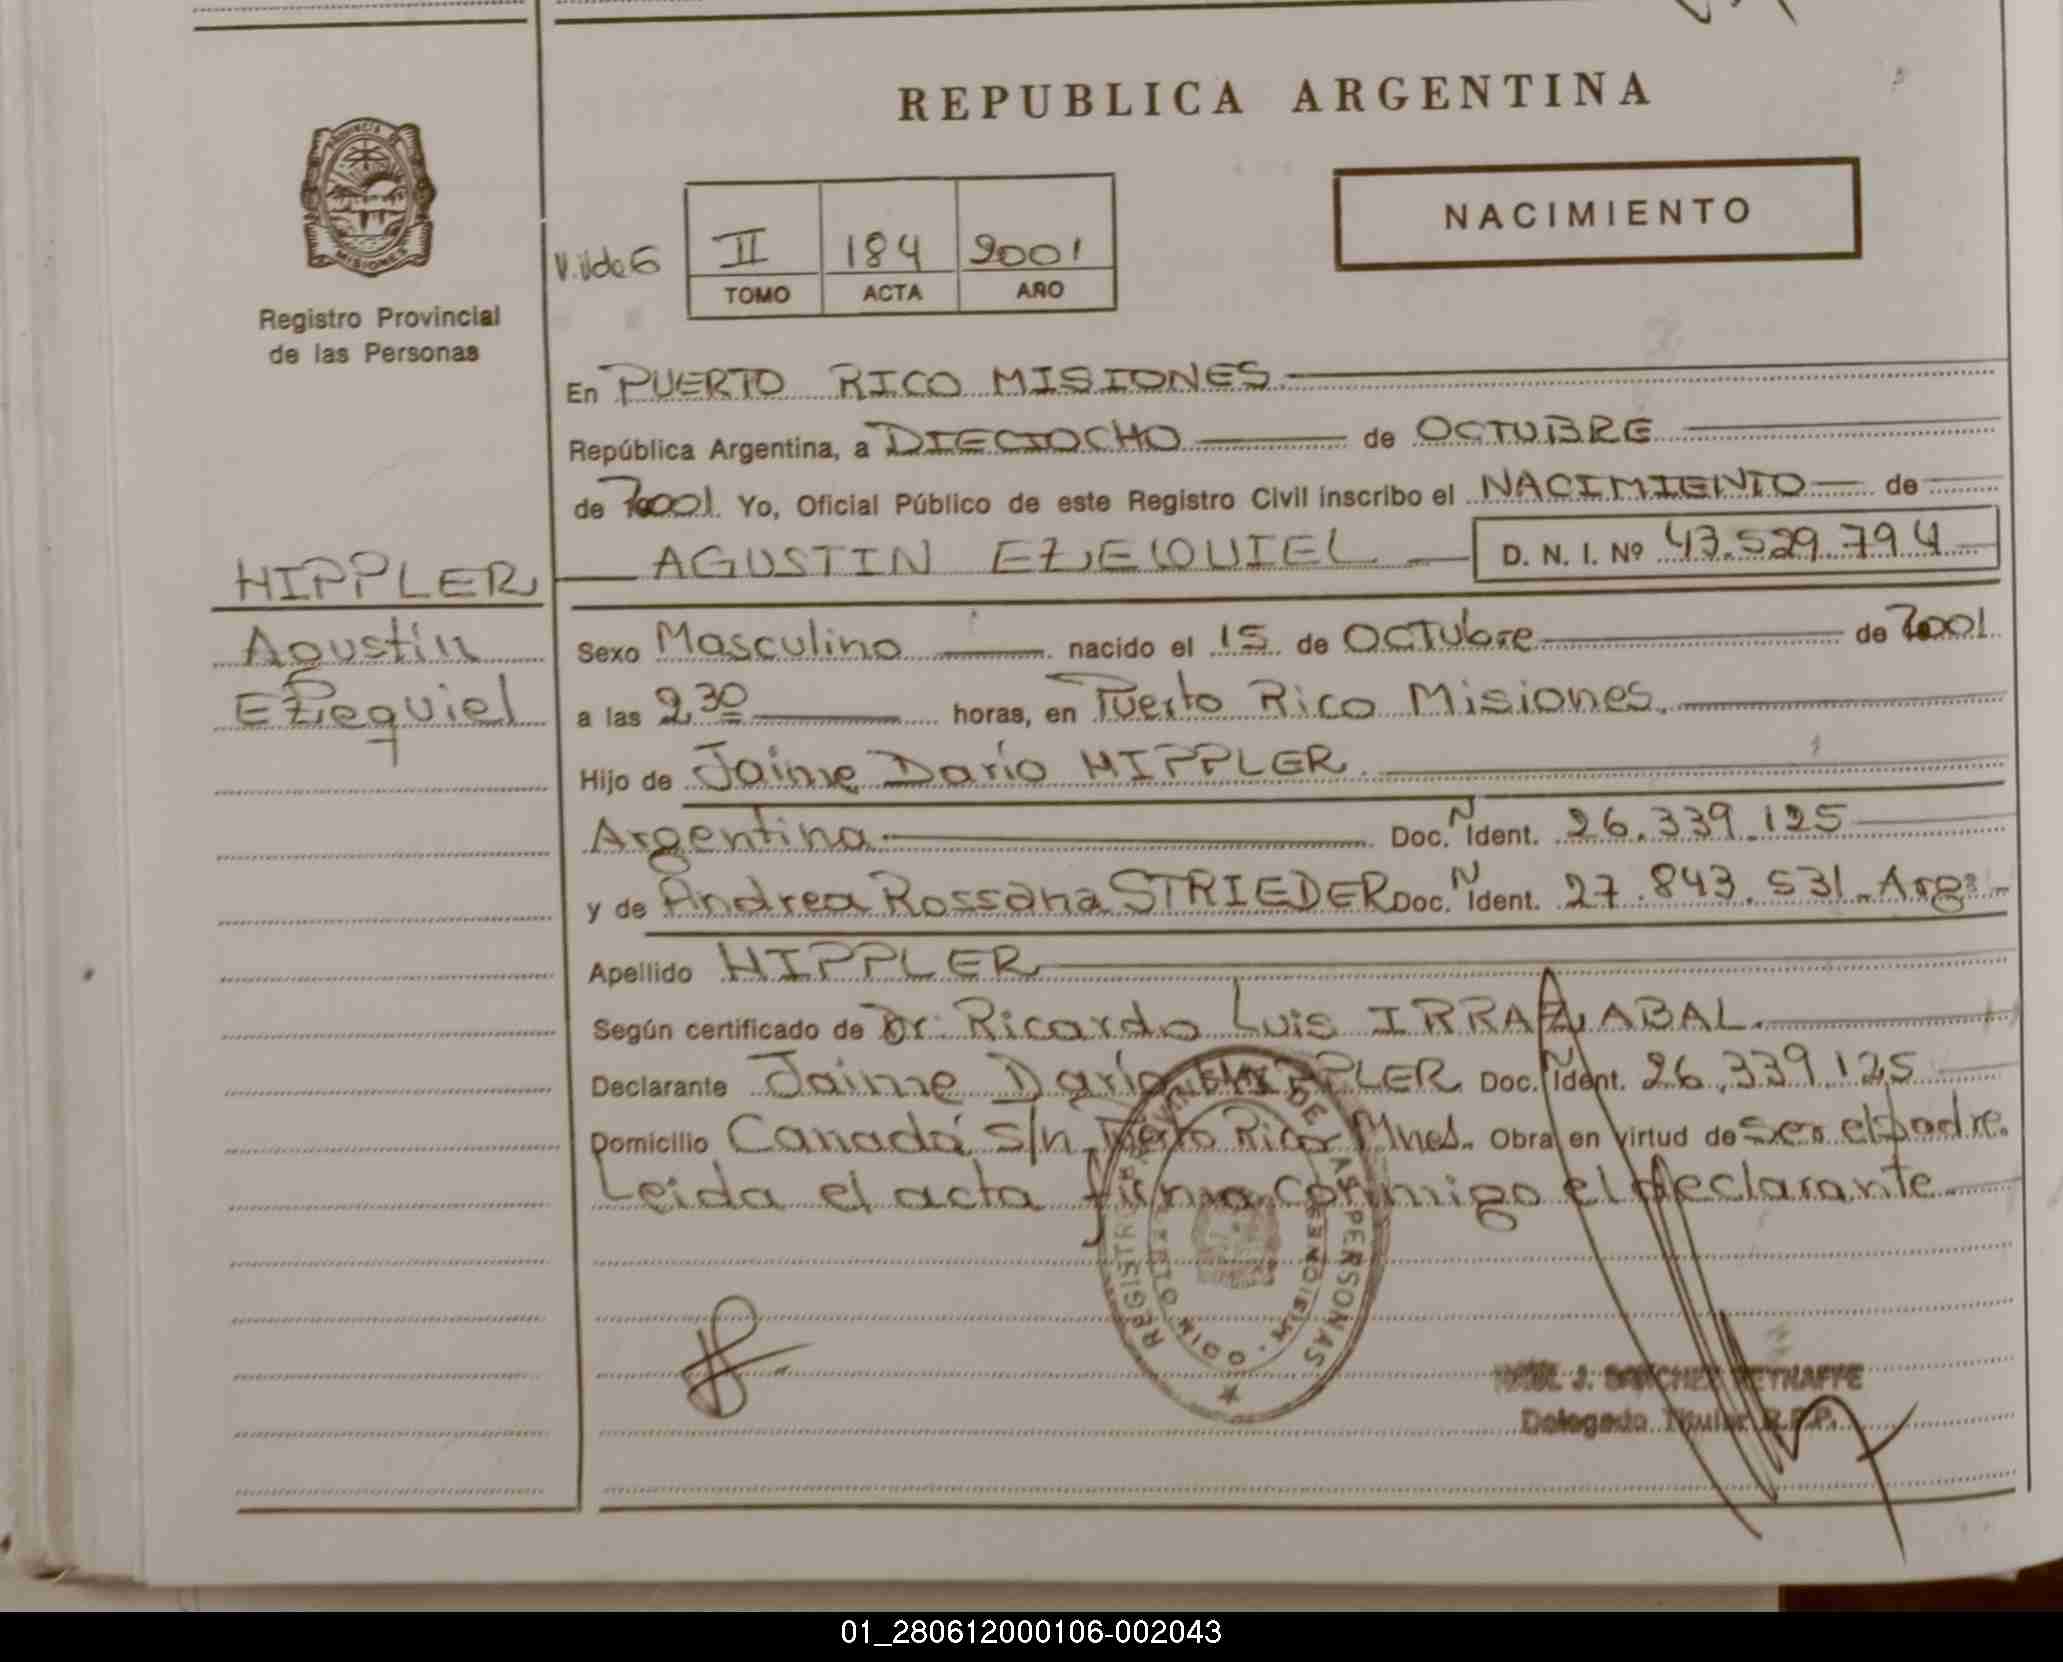 REPUBLICA ARGENTINA
PROVINCIA DE
MISIONES
Registro Provincial
de las Personas
NACIMIENTO
II 184 2001
TOMO ACTA AÑO
En PUERTO RICO MISIONES
República Argentina, a DIECIOCHO de OCTUBRE
de 2001 Yo, Oficial Público de este Registro Civil inscribo el NACIMIENTO de
HIPPLER AGUSTIN EZEQUIEL D. N. I. Nº 43.529.794
Agustín
Ezequiel
Sexo Masculino nacido el 15 de OCTUbre de 2001
a las 2,30 horas, en Puerto Rico Misiones.
Hijo de Jaime Darío HIPPLER.
Argentina Doc. Ident. N 26.339.125
y de Andrea Rossana STRIEDER Doc. Ident. N 27.843.531. Arg.
Apellido HIPPLER
Según certificado de Dr. Ricardo Luis IRRAZABAL.
Declarante Jaime Darío HIPPLER Doc. Ident. N 26.339.125
Domicilio Canadá s/n. Puerto Rico Mnes. Obra en virtud de ser el padre.
Leida el acta firma conmigo el declarante
REGISTRO PROVINCIAL DE LAS PERSONAS
PUERTO RICO - MISIONES
J. SANCHEZ
Delegado Titular R.P.P.
01_280612000106-002043